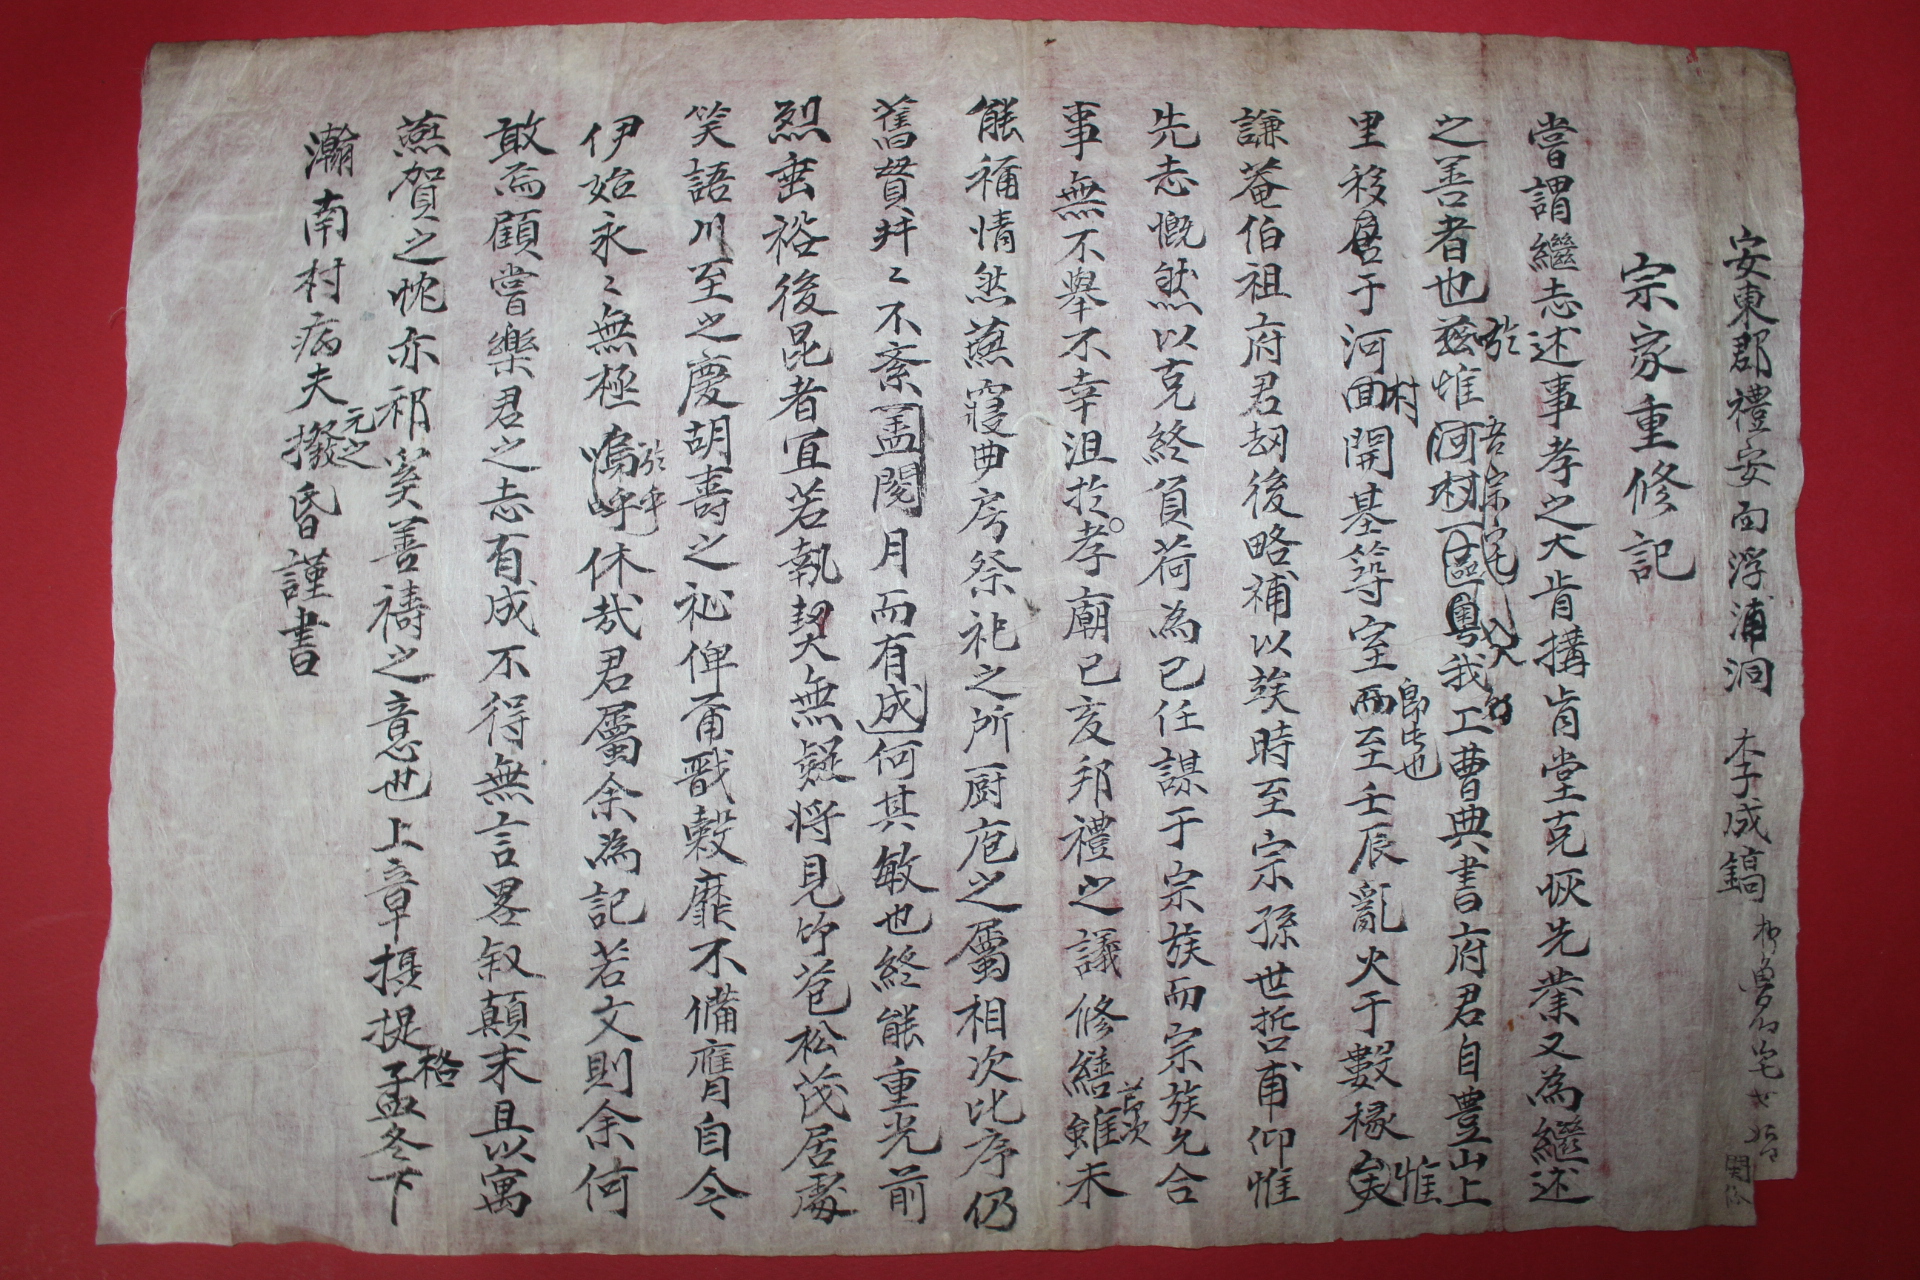 安東郡禮安面浮浦洞 李成鎬
宗家重修記
嘗謂繼志述事孝之大肯搆肯堂克恢先業又為繼述
之善者也玆惟河村一區粤我工曹典書府君自豊山上
於
吾宗宅
里移居于河回開基築室而至壬辰亂火于數椽矣
村
惟
謙菴伯祖府君刼後略補以竢時至宗孫世哲甫仰惟
先志慨然以克終負荷為已任謀于宗族而宗族允合
事無不舉不幸沮於孝廟已亥邦禮之議修繕雖未
能稱情然燕寢曲房祭祀之所厨庖之屬相次比序仍
舊貫井々不紊盖閱月而有成何其敏也終能重光前
烈垂裕後昆者宜若執契無疑将見竹苞松茂居處
笑語川至之慶胡壽之祉俾甭戬穀靡不備膺自今
伊始永々無極嗚呼休哉君屬余為記若文則余何
於乎
敢而顧嘗樂君之志有成不得無言畧叙顛末且以寓
燕賀之忱亦祁奚善禱之意也上章攝提孟冬下
格
瀚南村病夫撥昏謹書
元之